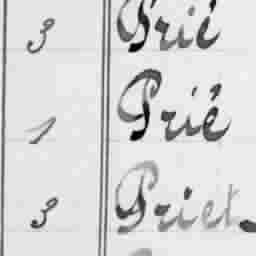 3 Prié
1 Prié
3 Priet